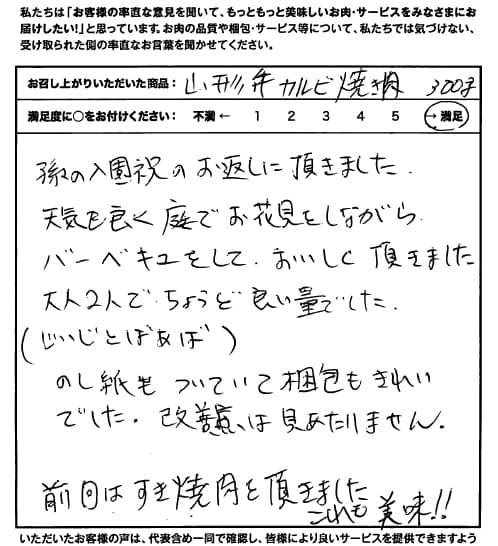 私たちは「お客様の率直な意見を聞いて、もっともっと美味しいお肉・サービスをみなさまにお
届けしたい!」と思っています。お肉の品質や梱包・サービス等について、私たちでは気づけない、
受け取られた側の率直なお言葉を聞かせてください。
お召し上がりいただいた商品: 山形牛カルビ焼き肉 300g
満足度に○をお付けください: 不満 ← 1 2 3 4 5 → 満足
孫の入園祝のお返しに頂きました.
天気も良く庭でお花見をしながら.
バーベキューをして.おいしく頂きました
大人2人でちょうど良い量でした.
(じいじとばあば)
のし紙もついていて梱包もきれい
でした.改善点は見あたりません.
前回はすき焼肉を頂きました
これも美味!!
いただいたお客様の声は、代表含め一同で確認し、皆様により良いサービスを提供できますよう